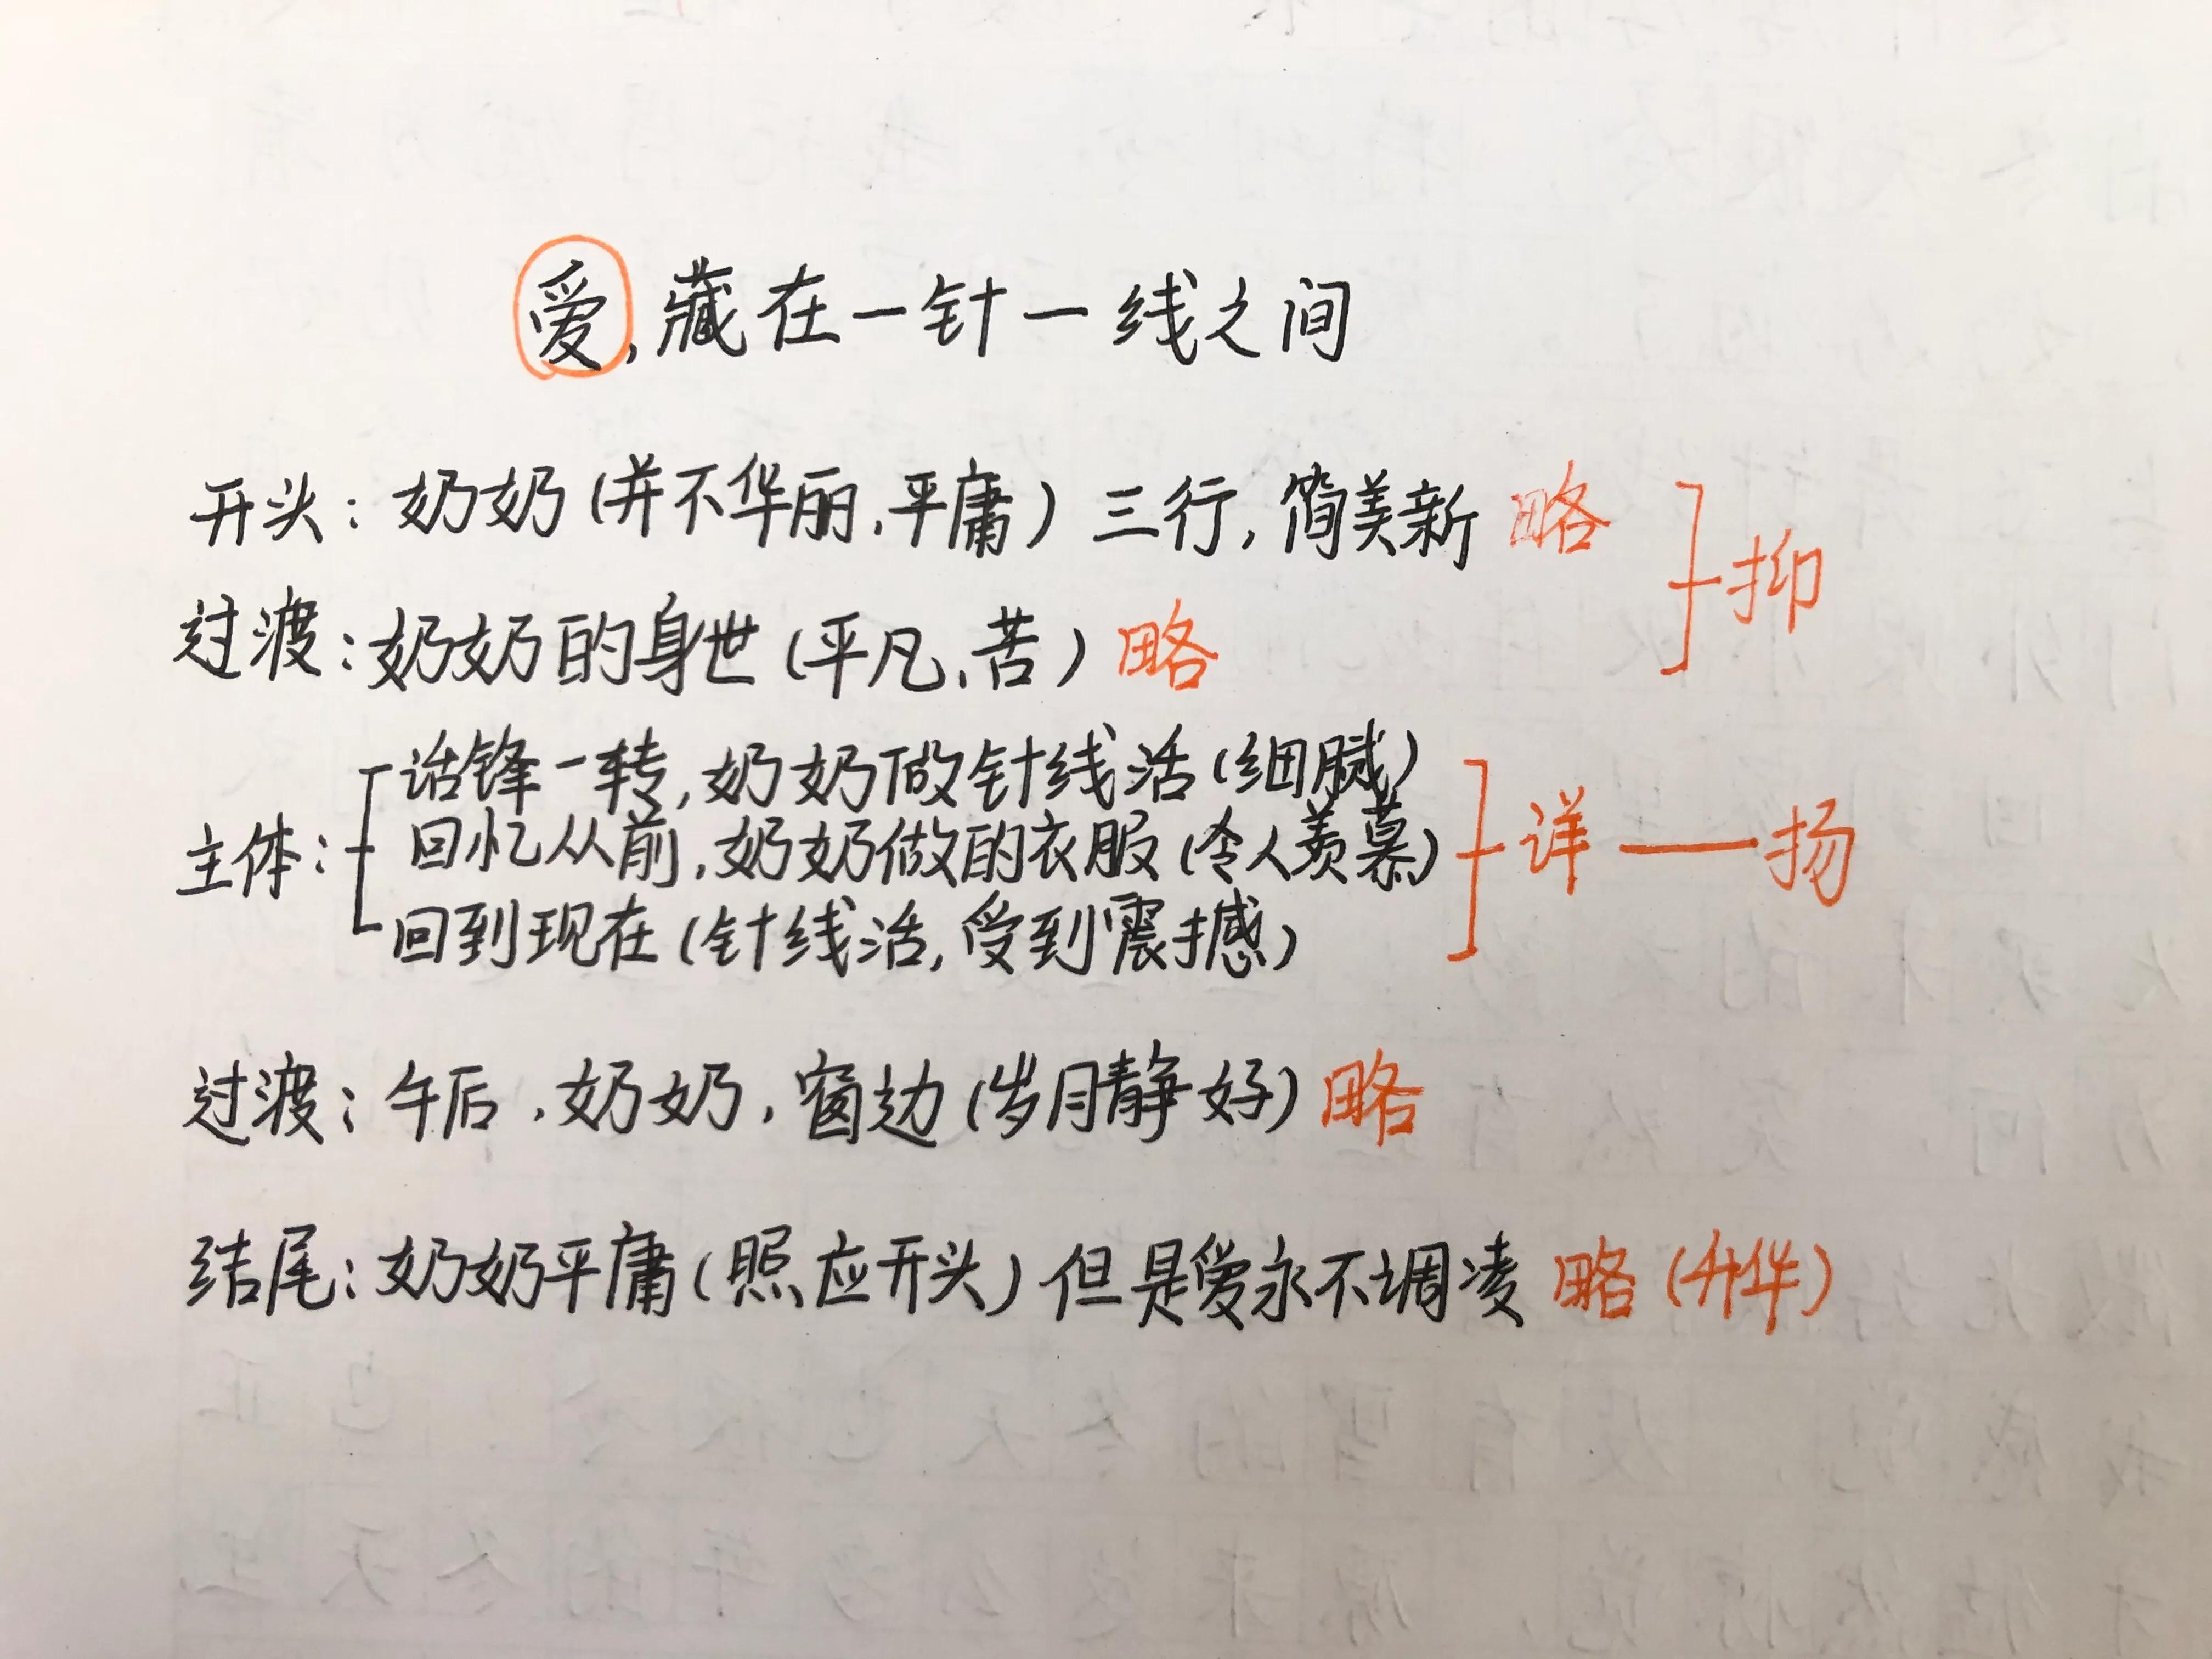 爱,藏在一针一线之间
开头:奶奶(并不华丽,平庸)三行,简美新 略
抑
过渡:奶奶的身世(平凡、苦)略
话锋一转,奶奶做针线活(细腻)
主体:回忆从前,奶奶做的衣服(令人羡慕) 详——扬
回到现在(针线活,受到震撼)
过渡:午后,奶奶,窗边(岁月静好)略
结尾:奶奶平庸(照应开头)但是爱永不调凌 略(升华)